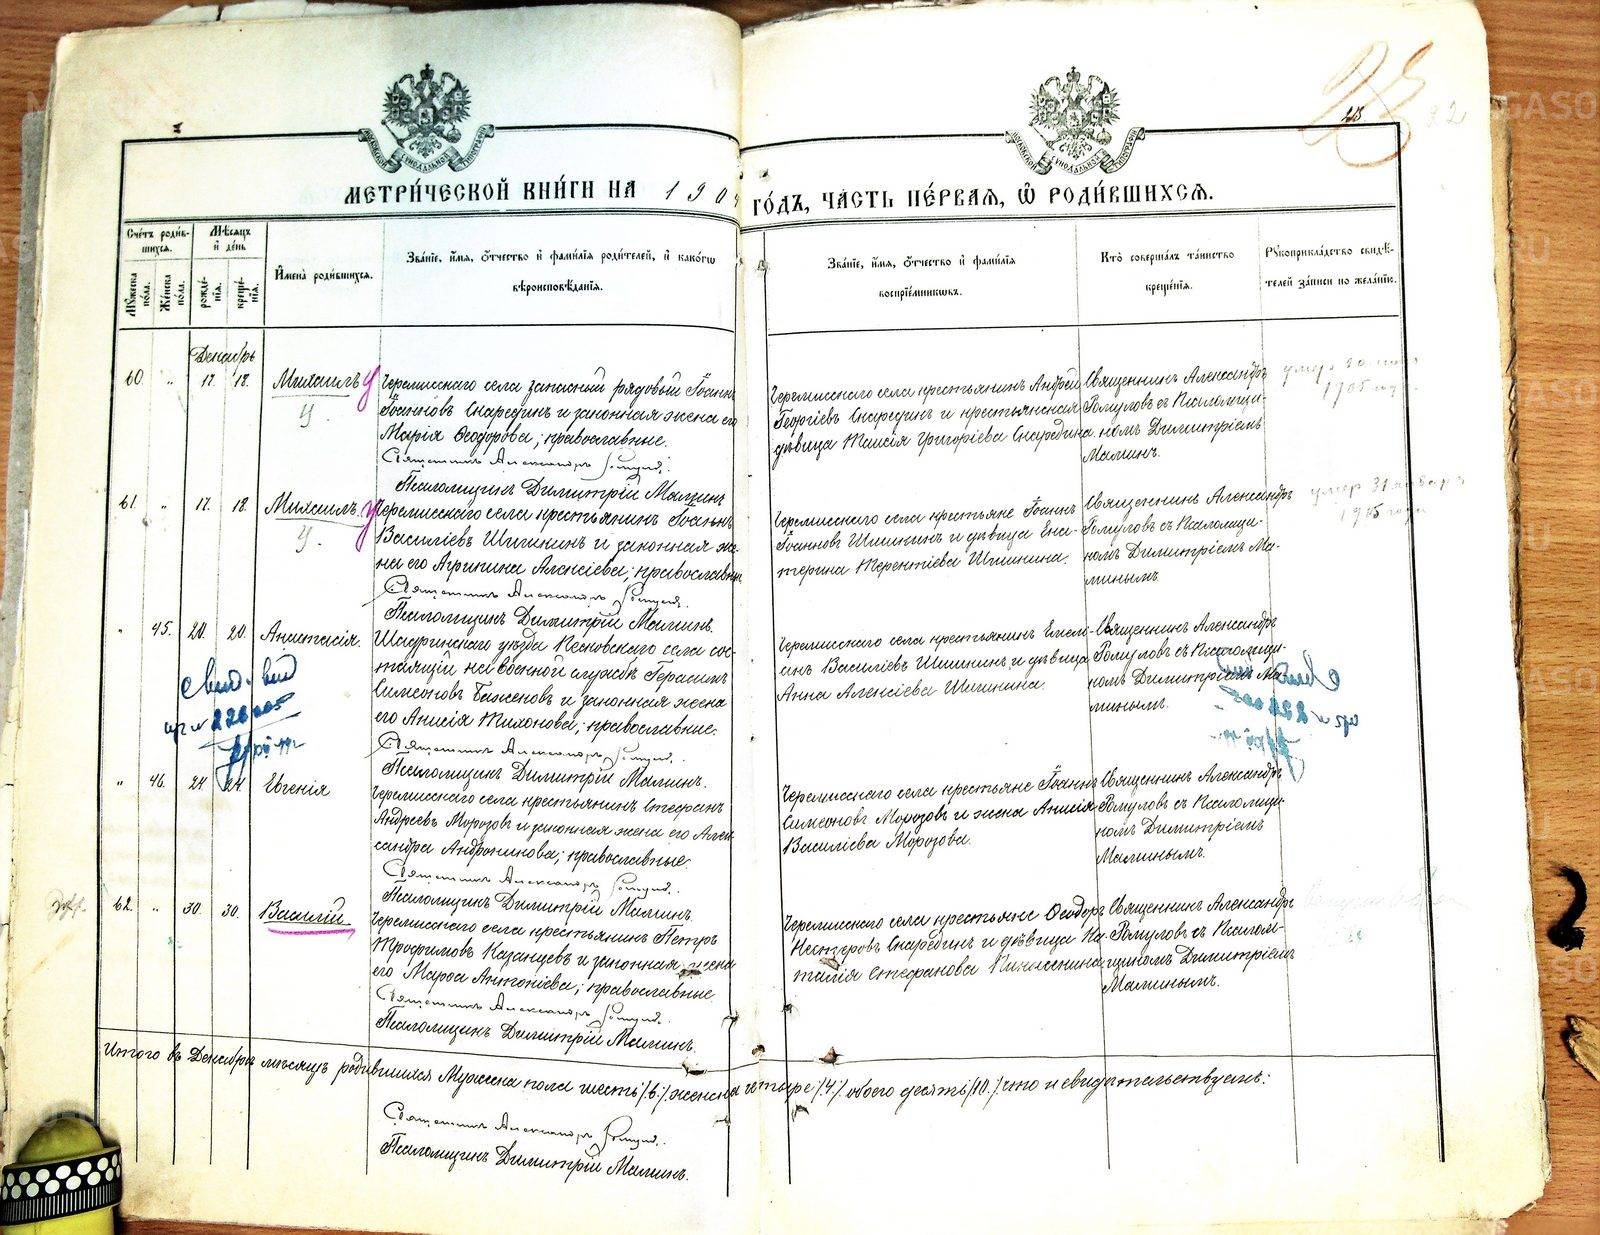 МЕТРИ́ЧЕСКОЙ КНИ́ГИ НА 1904 ГО́ДЪ, ЧА́СТЬ ПЕ́РВАЯ, Ѡ҆ РОДИ́ВШИХСѦ.
Сче́тъ роди́в-
шихся.
Мѣ́сяцъ
и҆ де́нь
Мꙋ́жеска по́ла.
Же́нска по́ла.
рожде́-
нїѧ.
креще́-
нїѧ.
И҆мена̀ роди́вшихсѧ.
Зва́нїе, и҆́мѧ, ѻ҆́тчество и҆ фами́лїѧ роди́телей, и҆ како́гѡ
вѣроисповѣ́данїѧ.
Зва́нїе, и҆́мѧ, ѻ҆́тчество и҆ фами́лїѧ
воспрїе́мникѡвъ.
Кто̀ соверша́лъ та́инство
креще́нїѧ.
Рꙋкоприкла́дство свидѣ́-
телей за́писи по жела́нїю.
Декабрь
60. " 17. 18. Михаилъ
Черемисскаго села запасный рядовый Іоаннъ
Іоанновъ Снарединъ и законная жена его
Марія Ѳеодорова; православные.
Священникъ Александръ Ромулов.
Псаломщикъ Димитрій Малинъ
Черемисскаго села крестьянинъ Андрей
Георгіевъ Снарединъ и крестьянская
дѣвица Таисія Григоріева Снаредина.
Священникъ Александръ
Ромуловъ съ Псаломщи-
комъ Димитріемъ
Малинъ.
умер 20
1905
61. " 17. 18. Михаилъ.
Черемисскаго села крестьянинъ Іоаннъ
Василіевъ Шишкинъ и законная же-
на его Агрипина Алексіева; православны
Священникъ Александръ Ромулов.
Псаломщикъ Димитрій Малинъ.
Черемисскаго села крестьяне Іоаннъ
Іоанновъ Шишкинъ и дѣвица Ека-
терина Терентіева Шишкина.
Священникъ Александръ
Ромуловъ съ Псаломщи-
комъ Димитріемъ Ма-
линымъ
умер 31 января
1905 года
" 45. 20. 20. Анастасія.
Шадринскаго уѣзда Песковскаго села сос-
тоящій на военной службѣ Герасимъ
Симеоновъ Баженовъ и законная жена
его Анисія Тихонова; православные.
Священникъ Александръ Ромулов.
Псаломщикъ Димитрій Малинъ.
Черемисскаго села крестьянинъ Емель-
анъ Василіевъ Шишкинъ и дѣвица
Анна Алексіева Шишкина.
Священникъ Александръ
Ромуловъ съ Псаломщи-
комъ Димитріемъ Ма-
линымъ.
" 46. 24 24 Евгенія
Черемисскаго села крестьянинъ Стефанъ
Андреевъ Морозовъ и законная жена его Алек-
сандра Андроникова; православные.
Священникъ Александръ Ромулов.
Псаломщикъ Димитрій Малинъ.
Черемисскаго села крестьяне Іоаннъ
Симеоновъ Морозовъ и жена Анисія
Василіева Морозова.
Священникъ Александръ
Ромуловъ съ Псаломщи-
комъ Димитріемъ
Малинымъ.
62. " 30. 30. Василій.
Черемисскаго села крестьянинъ Петръ
Трофимовъ Казанцевъ и законная жена
его Марѳа Антоніева; православные
Священникъ Александръ Ромулов.
Псаломщикъ Димитрій Малинъ.
Черемисскаго села крестьяне Ѳеодоръ
Несторовъ Снарединъ и дѣвица На-
талія Стефанова
Священникъ Александръ
Ромуловъ съ Псалом-
щикомъ Димитріемъ
Малинымъ.
Итого въ Декабрѣ мѣсяцѣ родившихся Мужеска пола шесть /6./ женска четыре /4/. обоего десять /10./ что и свидѣтельствуемъ:
Священникъ Александръ Ромулов.
Псаломщикъ Димитрій Малинъ.